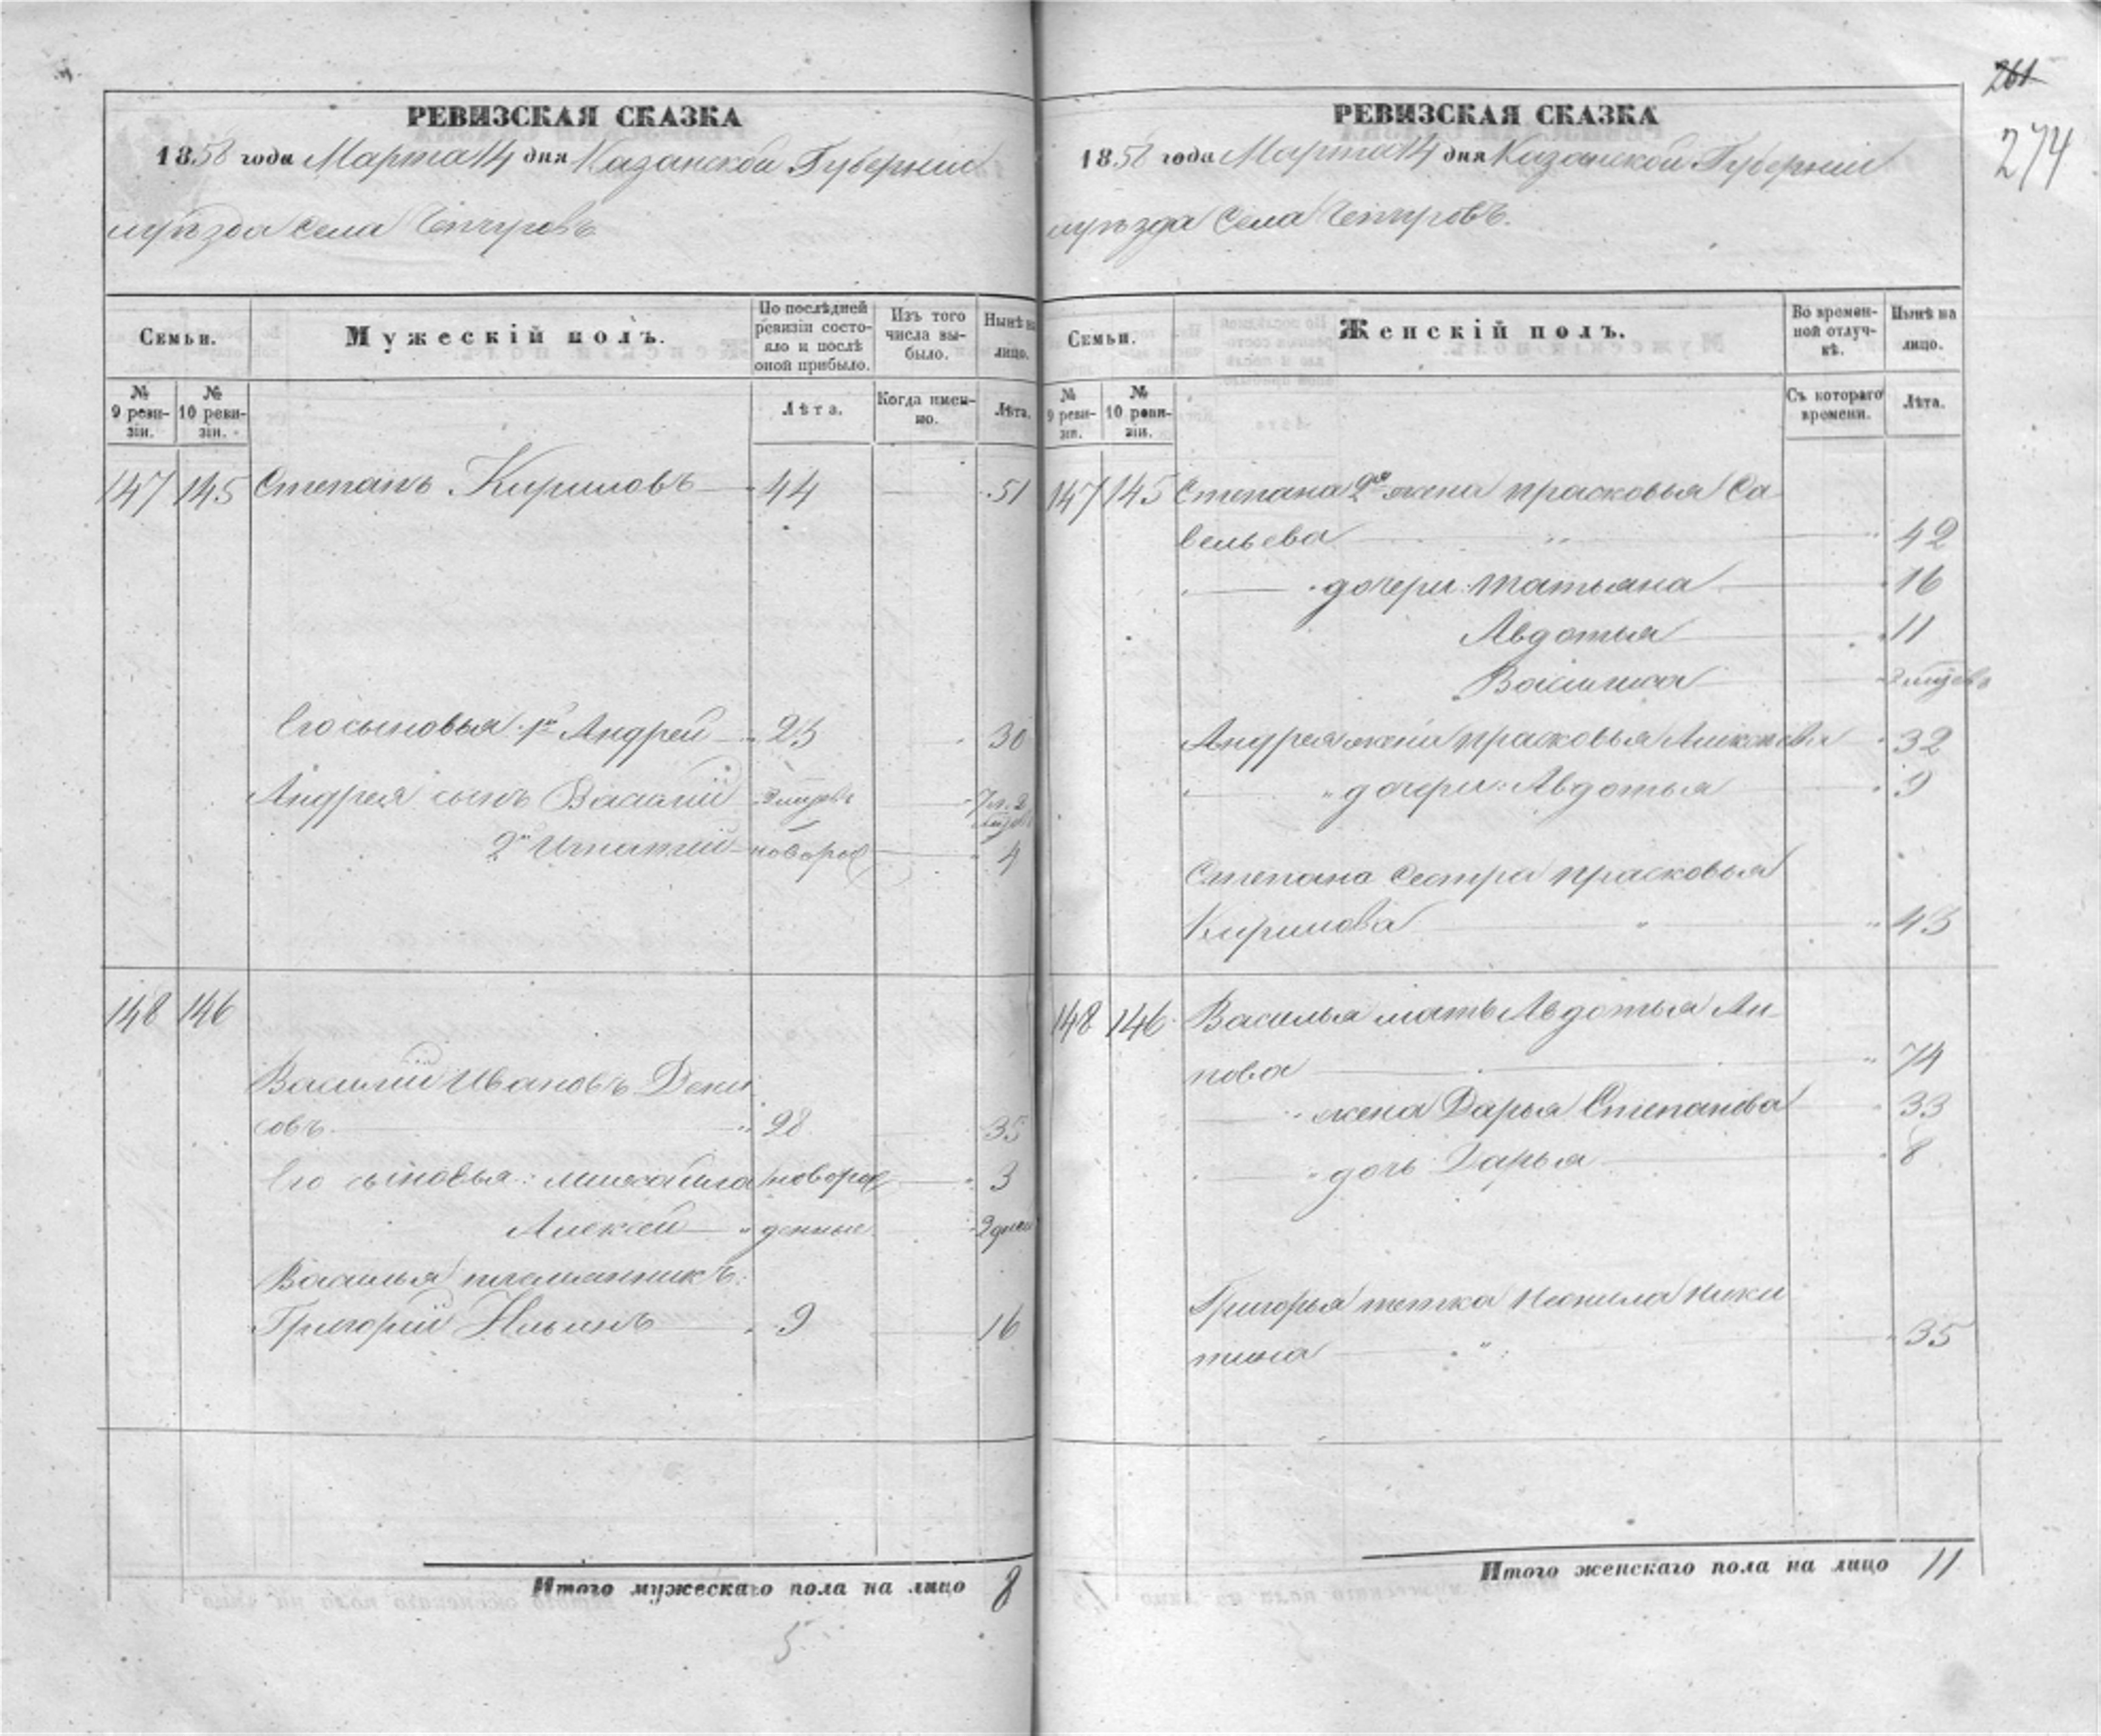 261
274
РЕВИЗСКАЯ СКАЗКА
1858 года Марта 14 дня Казанской Губернии
уѣзда Села
Семьи.
Мужескій полъ.
По послѣдней ревизіи состояло и послѣ оной прибыло.
Изъ того числа выбыло.
Нынѣ на лицо.
№ 9 ревизіи.
№ 10 ревизіи.
Лѣта.
Когда именно.
Лѣта.
147 145 Степанъ Кириловъ 44 51
Его сыновья 1й Андрей 23 30
Андрея сынъ Василий
2й Игнатий новорож 4
148 146
Василий Ивановъ Дени
совъ 28 35
Его сыновья: Михайла новорож 3
Алексей 2 дней
Василья племянникъ:
Григорий Ильинъ 9 16
Итого мужескаго пола на лицо 8
5
РЕВИЗСКАЯ СКАЗКА
1858 года Марта 14 дня Казанской Губернии
уѣзда Села
Семьи.
Женскій полъ.
Во временной отлучкѣ.
Нынѣ на лицо.
№ 9 ревизіи.
№ 10 ревизіи.
Съ котораго времени.
Лѣта.
147 145 Степана 2я жена Прасковья Са
вельева 42
дочери: Татьяна 16
Авдотья 11
Василиса
Андрея жена Прасковья Алексеева 32
дочери: Авдотья 9
Степана Сестра Прасковья
Кирилова 43
148 146 Василья мать Авдотья Ан
пова 74
жена Дарья Степанова 33
дочь Дарья 8
Григорья тетка Неонила Ники
тина 35
Итого женскаго пола на лицо 11